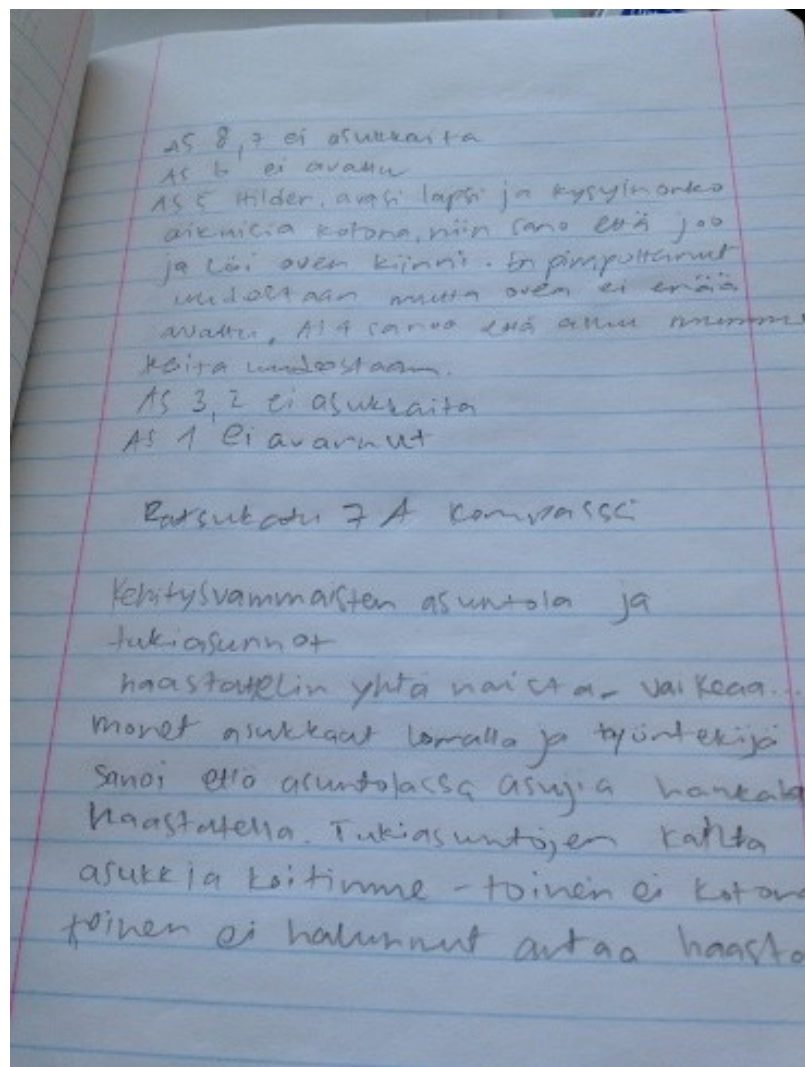 AS 8,7 ei asukkaita
AS 6 ei avattu
AS 5 Hilder, avasi lapsi ja kysyin onko
aikuisia kotona, niin sano että joo
ja löi oven kiinni. En pimputtanut
uudestaan mutta oven ei enää
avattu, AS 4 sanoo että
koita uudestaan.
AS 3,2 ei asukkaita
AS 1 ei avannut
Ratsukatu 7 A Kompassi
Kehitysvammaisten asuntola ja
tukiasunnot
haastattelin yhtä naista - vaikeaa..
monet asukkaat lomalla ja työntekijä
sanoi että asuntolassa asujia hankala
haastatella. Tukiasuntojen kahta
asukkia koitimme - toinen ei kotona
toinen ei halunnut antaa haasta